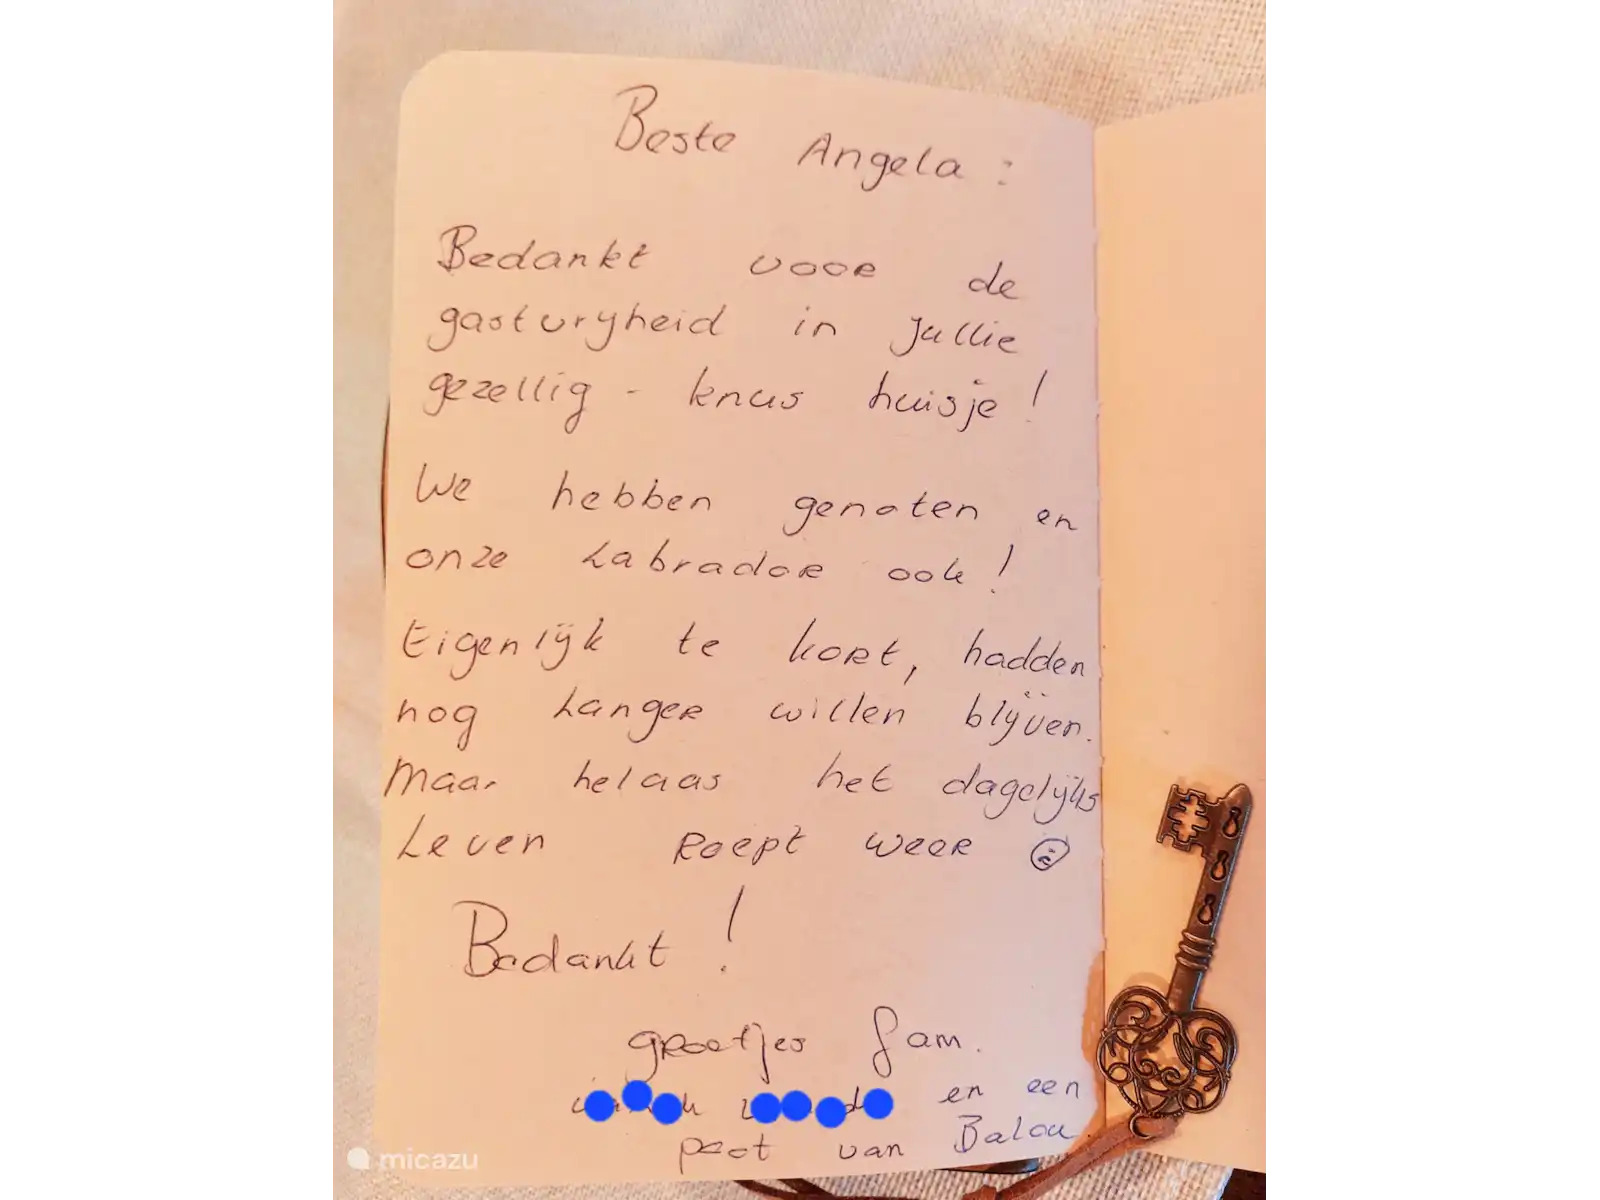 Beste Angela:
Bedankt voor de
gastvrijheid in jullie
gezellig - knus huisje!
We hebben genoten en
onze Labrador ook!
Eigenlijk te kort, hadden
nog Langer willen blijven.
Maar helaas het dagelijks
Leven roept weer ☹
Bedankt!
groetjes fam.
en een
poot van Balou
micazu